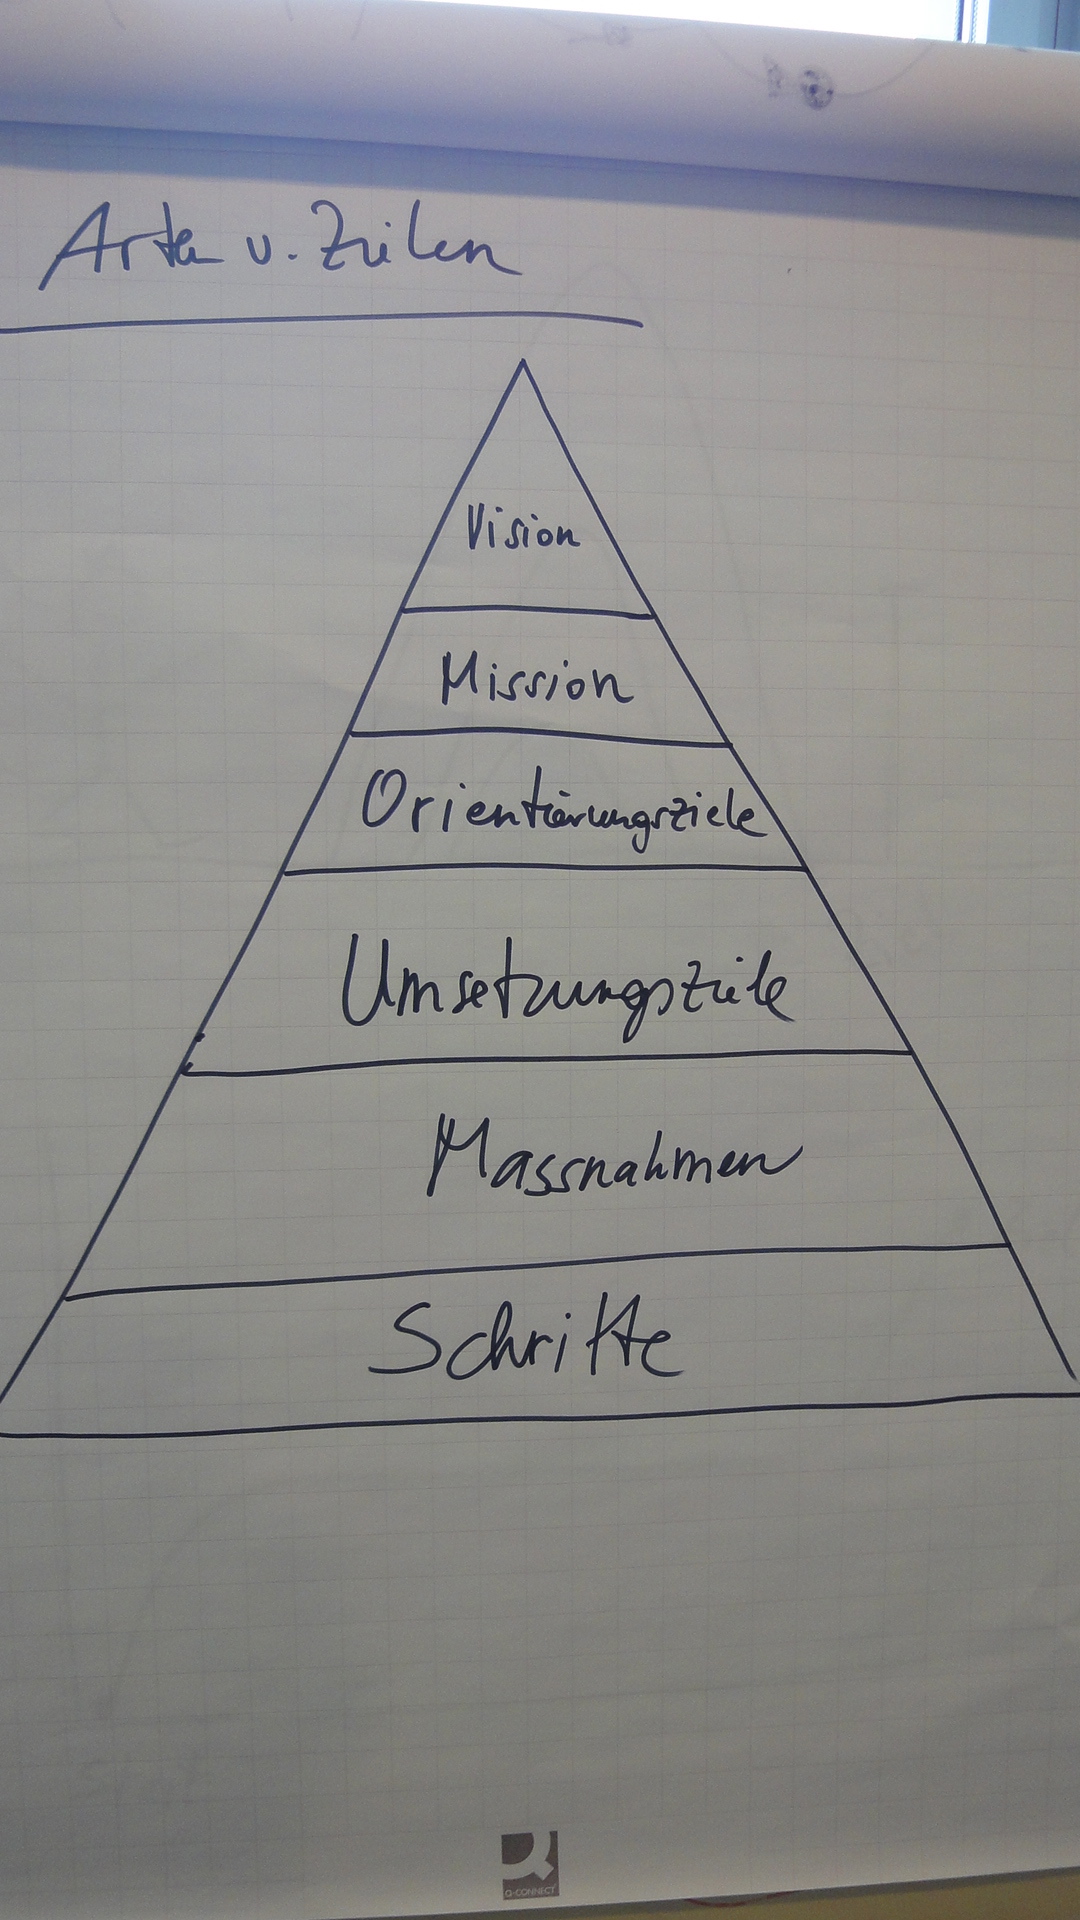 Arten v. Zielen
Vision
Mission
Orientierungsziele
Umsetzungsziele
Massnahmen
Schritte
Q-CONNECT